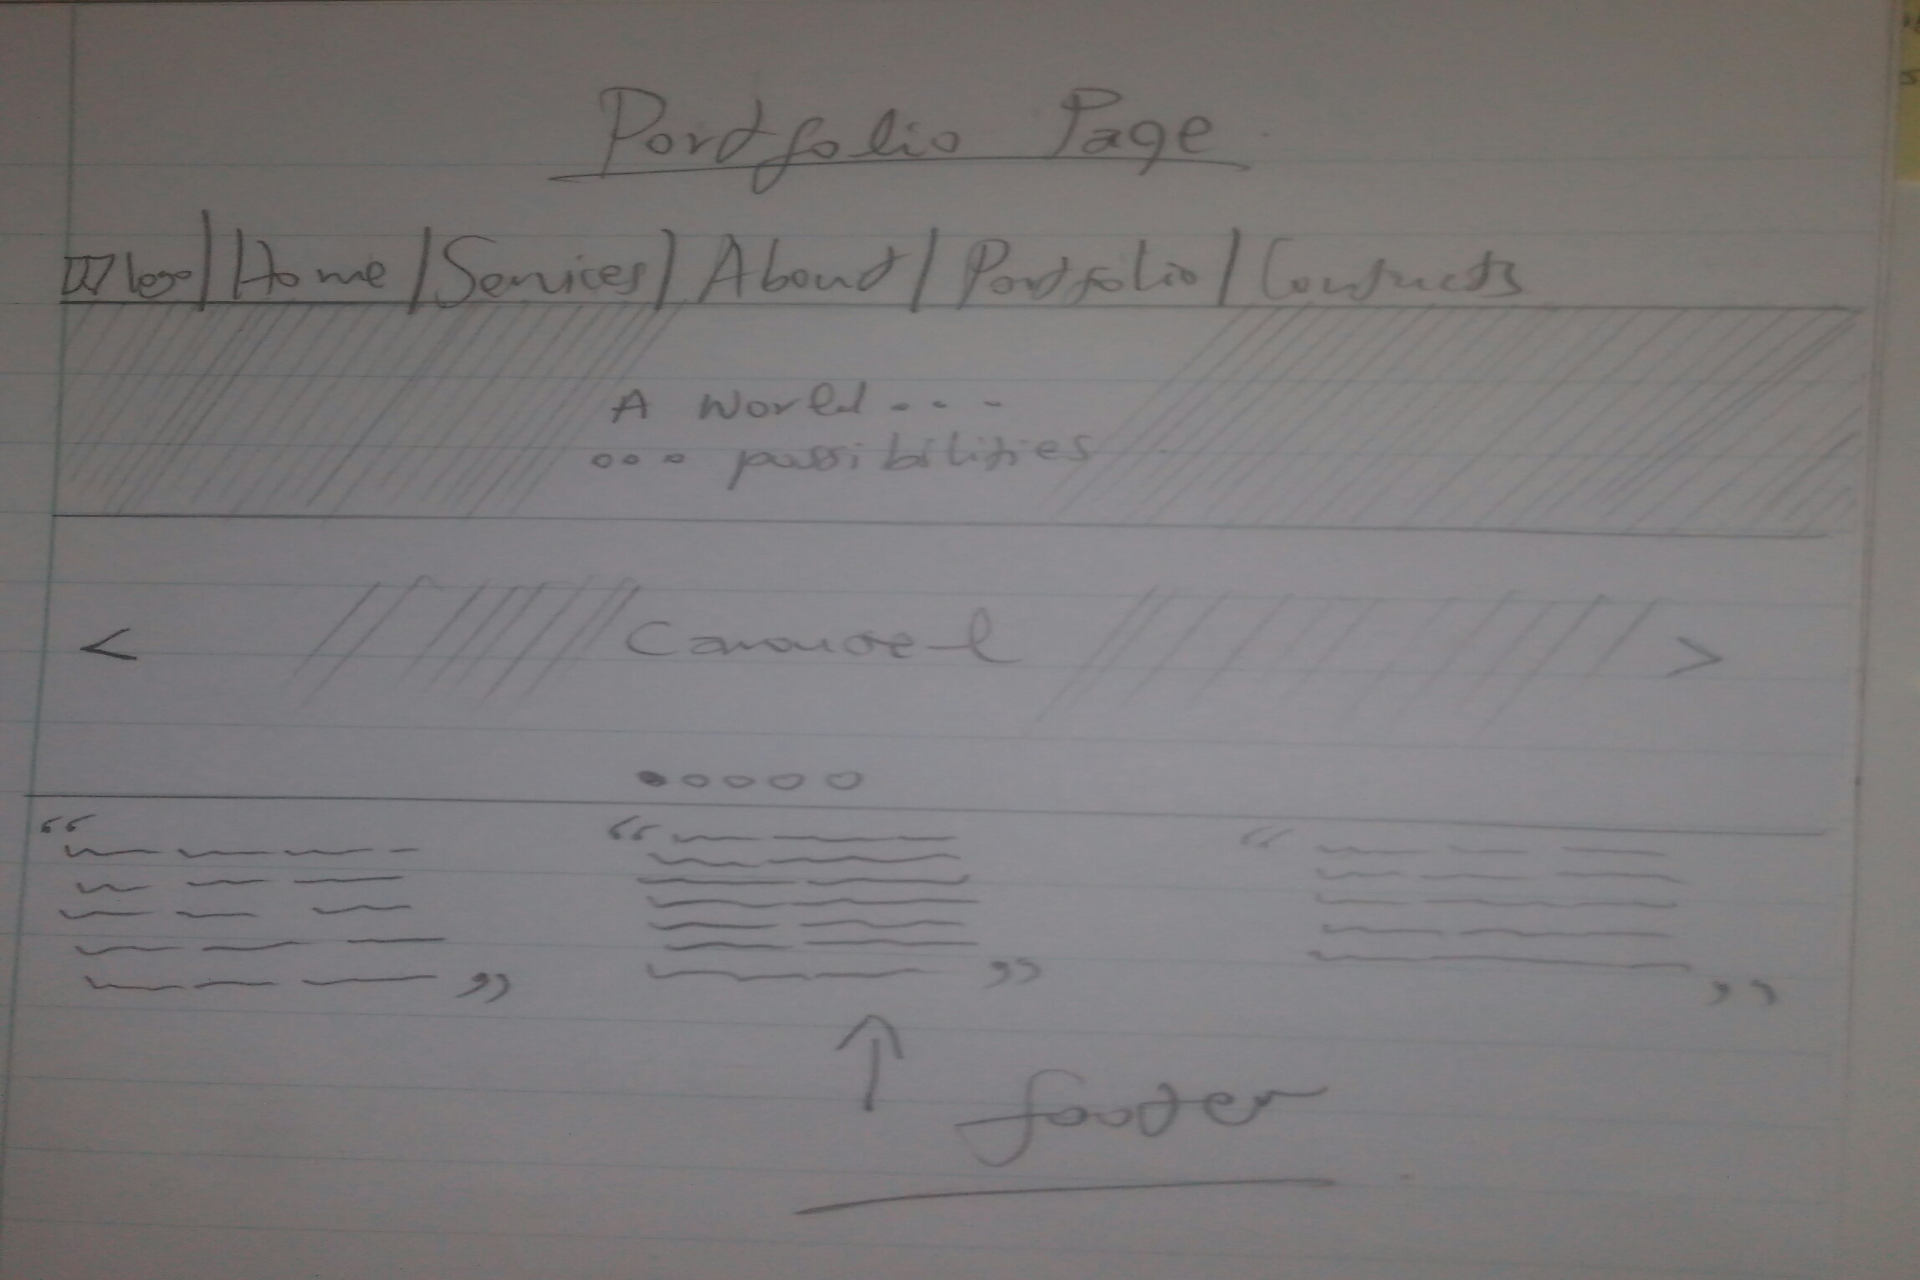 Portfolio Page
logo | Home | Services | About | Portfolio | Contacts
A World ...
... possibilities
< Carousel >
“ ” “ ” “ ”
footer